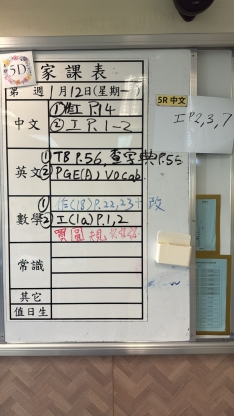 5D
家課表
第 週 1月12日(星期一)
5R 中文
工P.2,3,7
中文
① 工P.14
② 工P.1-2
英文
① TB P.56, P.55
② PGE(A) Vocab
數學
① 作(1B)P.22,23+改
② 工(1a)P.1,2
買圓規
常識
其它
值日生